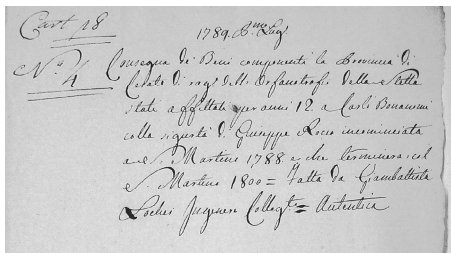 Cart 18
1789. P.mo Lug.
N.o 4
Consegna de' Beni componenti la Provincia di
di rag.e dell' Orfanotrofio della Stella
stati affittati per anni 12. a Carlo Bonanomi
colla sigurtà di Giuseppe Rocco incominciata
a S. Martino 1788 e che terminerà col
S. Martino 1800 = Fatta da Giambattista
Locher Ingegnere Colleg.to = Autentica